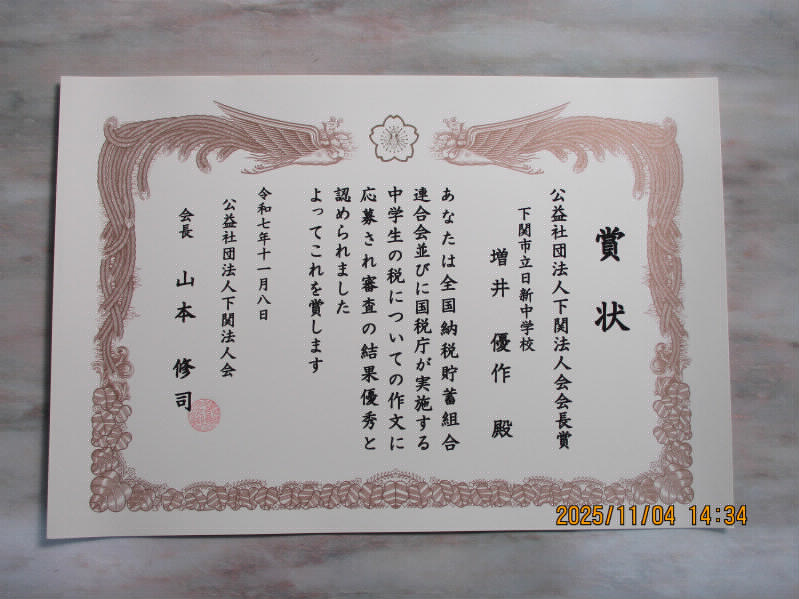 賞状
公益社団法人下関法人会会長賞
下関市立日新中学校
増井優作 殿
あなたは全国納税貯蓄組合
連合会並びに国税庁が実施する
中学生の税についての作文に
応募され審査の結果優秀と
認められました
よってこれを賞します
令和七年十一月八日
公益社団法人下関法人会
会長 山本 修司
2025/11/04 14:34